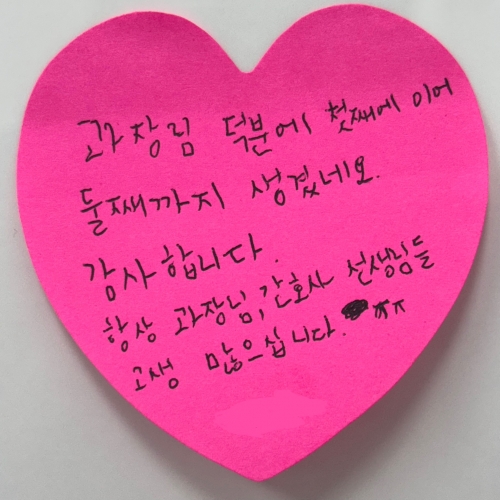 과장님 덕분에 첫째에 이어
둘째까지 생겼네요.
감사합니다.
항상 과장님, 간호사 선생님들
고생 많으십니다. ㅠㅠ